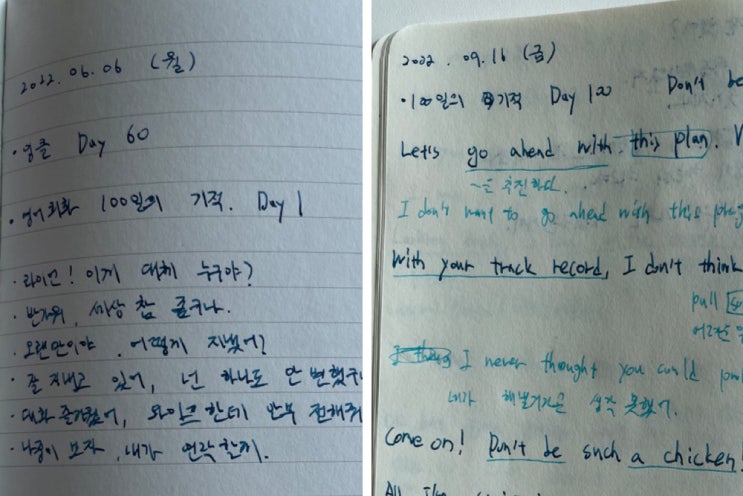 2022.06.06 (월)
· 영클 Day 60
· 영어회화 100일의 기적. Day 1
· 라이언! 이게 대체 누구야?
· 반가워, 세상 참 좁구나.
· 오랜만이야. 어떻게 지냈어?
· 잘 지내고 있어, 넌 하나도 안 변했구
· 대화 즐거웠어, 와이프한테 안부 전해줘
· 나중에 보자, 내가 연락할게.
2022.09.16 (금)
· 100일의 기적 Day 100 Don't be
Let's go ahead with this plan.
~을 추진하다.
I don't want to go ahead with this plan
With your track record, I don't think
pull
I never thought you could
내가 해낼거라곤 생각 못했어.
Come on! Don't be such a chicken!
All the